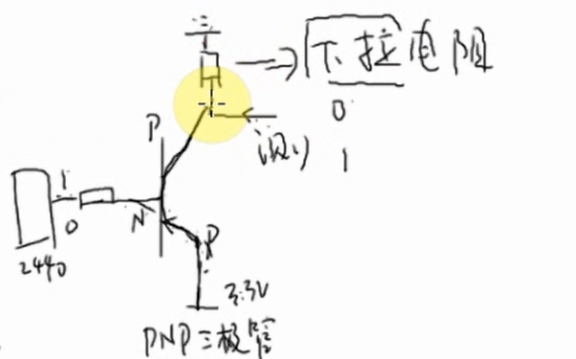 下拉电阻
0
P
(测)
1
1
0
N
P
2440
3.3V
PNP三极管